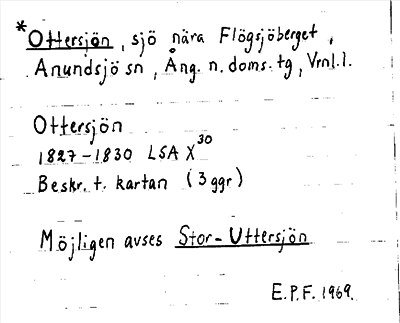 *Ottersjön, sjö nära Flögsjöberget,
Anundsjö sn, Ång. n. doms. tg, Vrnl. l.
Ottersjön
1827-1830 LSA X³⁰
Beskr. t. kartan (3 ggr)
Möjligen avses Stor-Uttersjön
E.P.F. 1969.